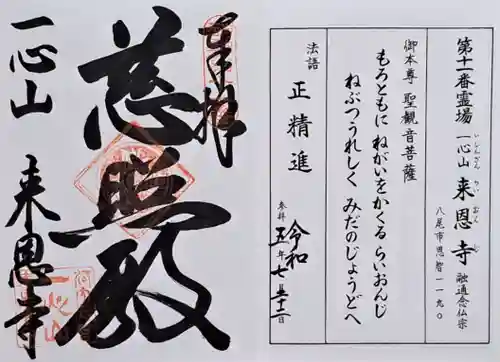 第十一番霊場 一心山 来恩寺 融通念仏宗
いっしんざん らい おん じ
八尾市恩智一一九〇
御本尊 聖観音菩薩
もろともに ねがいをかくる らいおんじ
ねぶつうれしく みだのじょうどへ
法語 正精進
参拝 令和五年七月十二日
奉拝
慈照殿
一心山 来恩寺